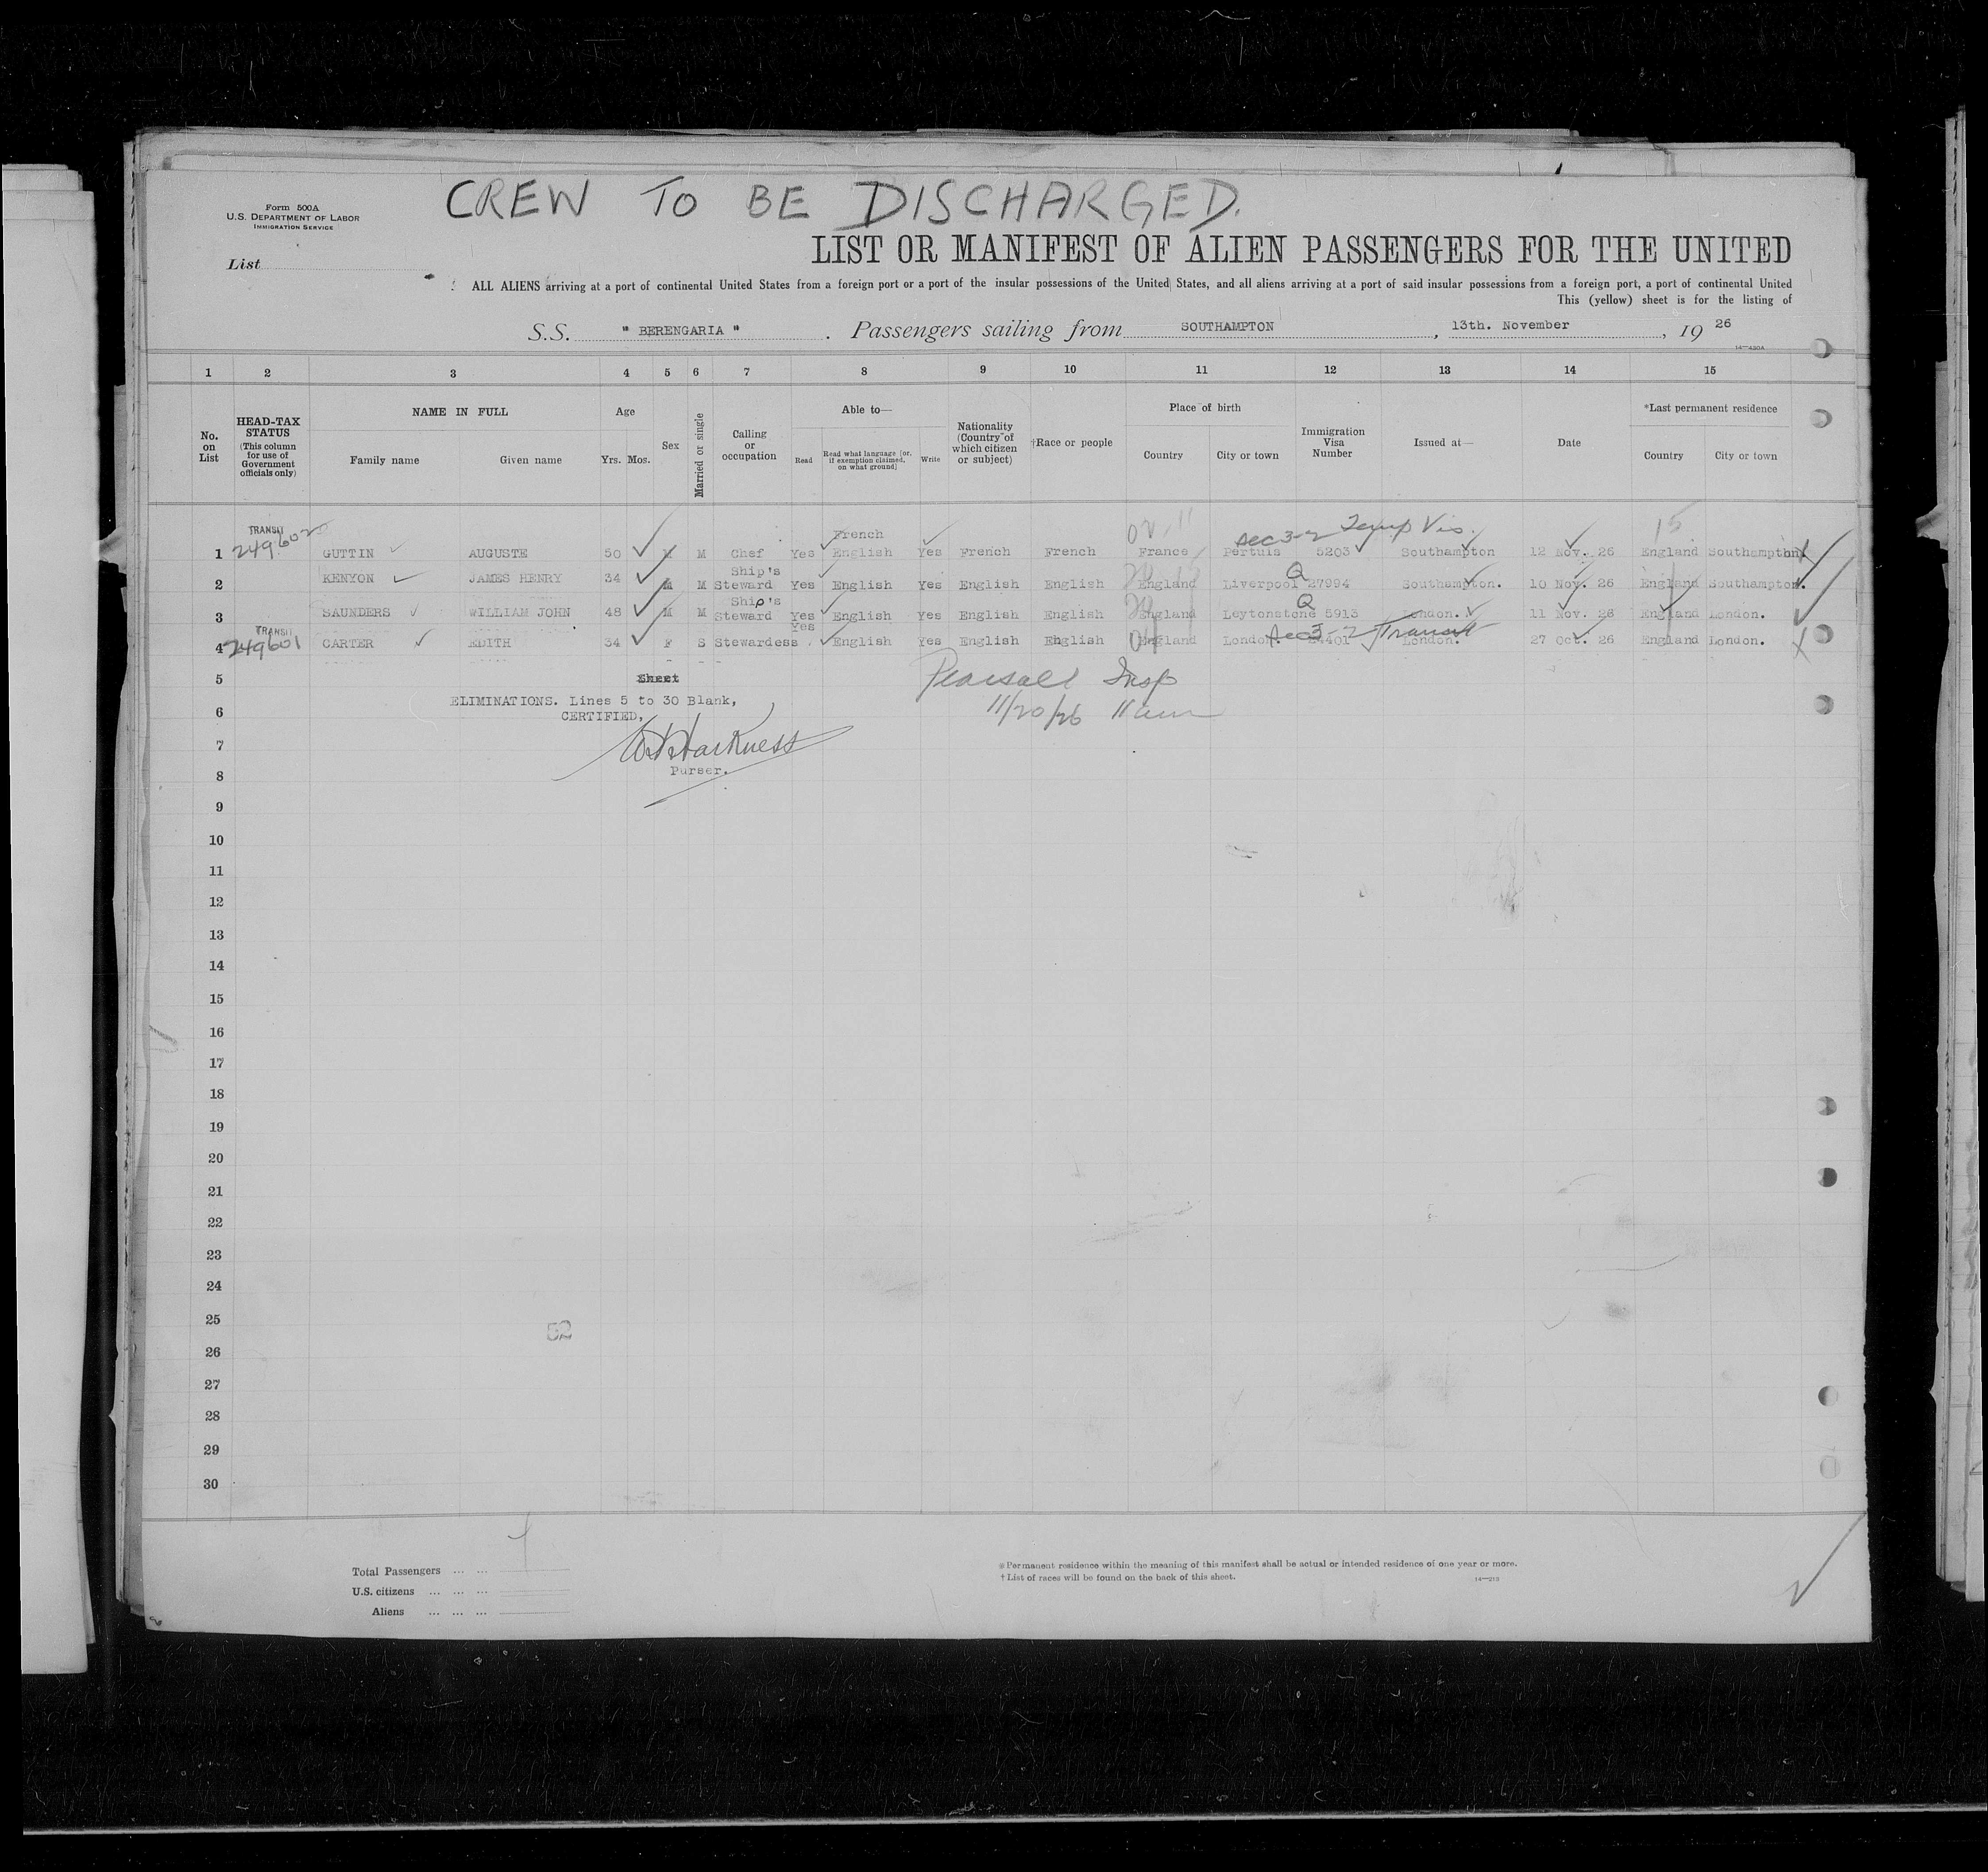 CREW TO BE DISCHARGED.
Form 500A
U.S. DEPARTMENT OF LABOR
IMMIGRATION SERVICE
List
LIST OR MANIFEST OF ALIEN PASSENGERS FOR THE UNITED
ALL ALIENS arriving at a port of continental United States from a foreign port or a port of the insular possessions of the United States, and all aliens arriving at a port of said insular possessions from a foreign port, a port of continental United
This (yellow) sheet is for the listing of
S.S. " BERENGARIA ". Passengers sailing from SOUTHAMPTON, 13th. November, 19 26
14—430A
1 2 3 4 5 6 7 8 9 10 11 12 13 14 15
No. on List
HEAD-TAX STATUS (This column for use of Government officials only)
NAME IN FULL
Family name Given name
Age
Yrs. Mos.
Sex
Married or single
Calling or occupation
Able to—
Read Read what language [or, if exemption claimed, on what ground] Write
Nationality (Country of which citizen or subject)
†Race or people
Place of birth
Country City or town
Immigration Visa Number
Issued at—
Date
*Last permanent residence
Country City or town
TRANSIT French 02.11 Sec 3-2 Temp Vis. 15
1 249602 GUTTIN AUGUSTE 50 M M Chef Yes English Yes French French France Pertuis 5203 Southampton 12 Nov. 26 England Southampton
Ship's Q
2 KENYON JAMES HENRY 34 M M Steward Yes English Yes English English England Liverpool 27994 Southampton. 10 Nov. 26 England Southampton.
Ship's Q
3 SAUNDERS WILLIAM JOHN 48 M M Steward Yes English Yes English English England Leytonstone 5913 London. 11 Nov. 26 England London.
TRANSIT Yes Sec 3-2 Transit
4 249601 CARTER EDITH 34 F S Stewardess English Yes English English England London. London. 27 Oct. 26 England London.
5 Sheet Pearsall Insp
ELIMINATIONS. Lines 5 to 30 Blank,
6 CERTIFIED, 11/20/26 11 am
7 Harkness
8 Purser.
9
10
11
12
13
14
15
16
17
18
19
20
21
22
23
24
25
52
26
27
28
29
30
Total Passengers ... ...
U.S. citizens ... ... ...
Aliens ... ... ...
*Permanent residence within the meaning of this manifest shall be actual or intended residence of one year or more.
†List of races will be found on the back of this sheet.
14—213